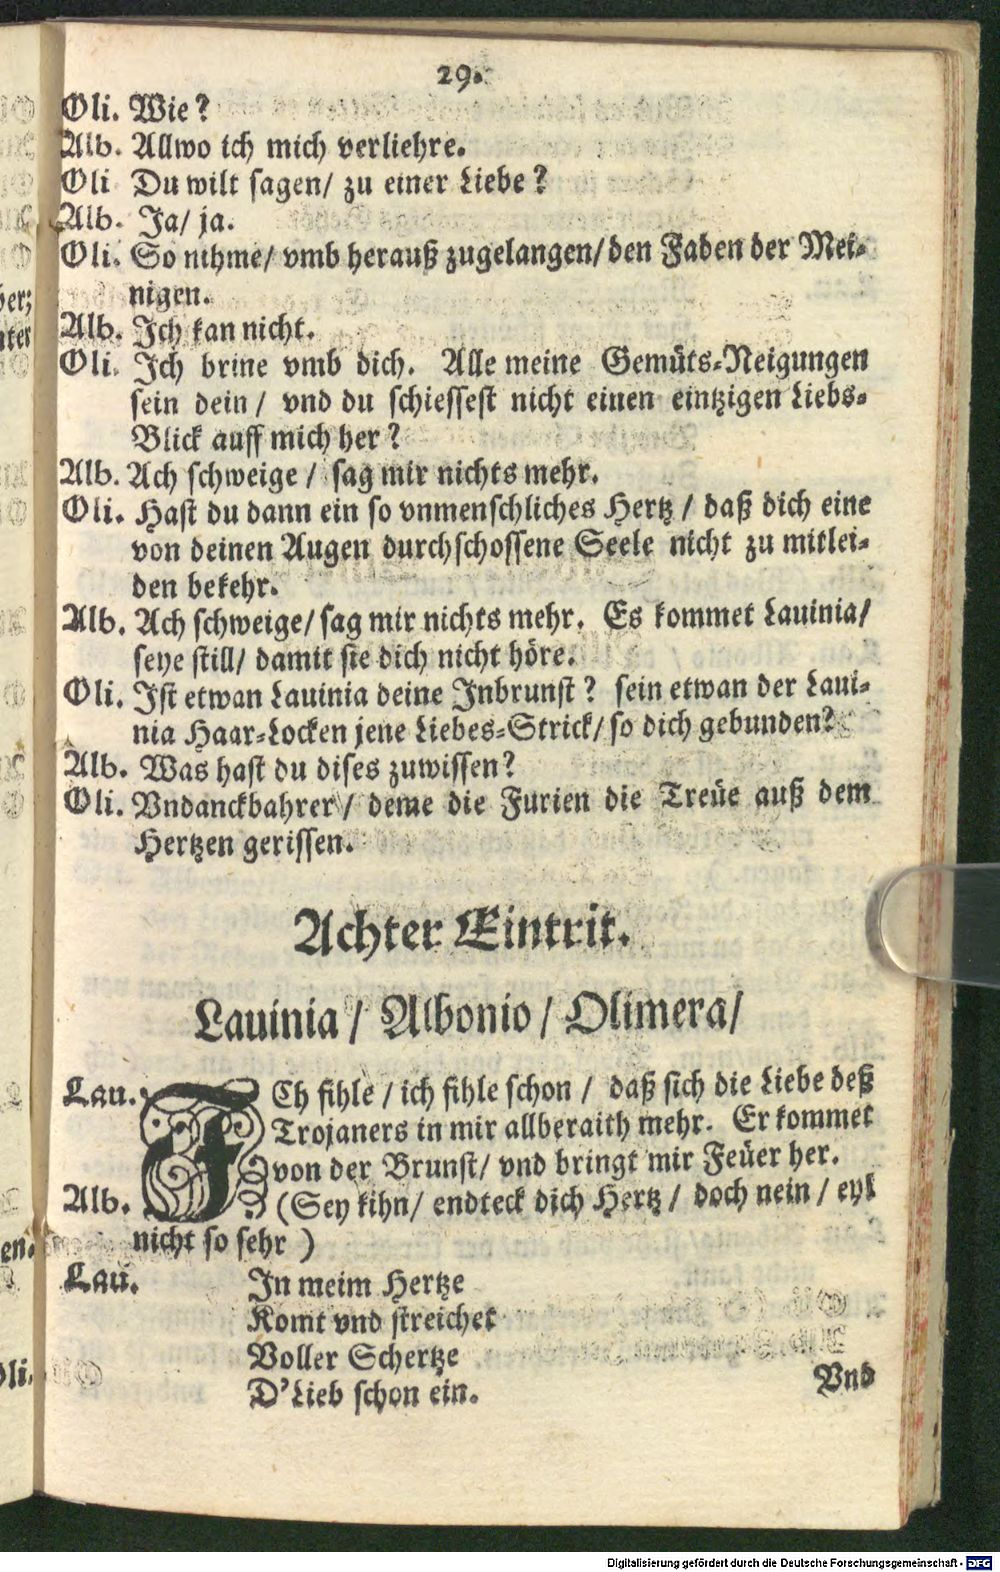 29.
Oli. Wie?
Alb. Allwo ich mich verliehre.
Oli Du wilt sagen/ zu einer Liebe?
Alb. Ja/ ja.
Oli. So nihme/ vmb herauß zugelangen/ den Faden der Mei-
nigen.
Alb. Ich kan nicht.
Oli. Ich brine vmb dich. Alle meine Gemüts-Neigungen
sein dein / vnd du schiessest nicht einen eintzigen Liebs-
Blick auff mich her?
Alb. Ach schweige / sag mir nichts mehr.
Oli. Hast du dann ein so vnmenschliches Hertz / daß dich eine
von deinen Augen durchschossene Seele nicht zu mitlei-
den bekehr.
Alb. Ach schweige/ sag mir nichts mehr. Es kommet Lauinia/
seye still/ damit sie dich nicht höre.
Oli. Ist etwan Lauinia deine Inbrunst? sein etwan der Laui-
nia Haar-Locken jene Liebes-Strick/ so dich gebunden?
Alb. Was hast du dises zuwissen?
Oli. Vndanckbahrer / deme die Furien die Treüe auß dem
Hertzen gerissen.
Achter Eintrit.
Lauinia / Albonio / Olimera/
Lau. ICh fihle / ich fihle schon / daß sich die Liebe deß
Trojaners in mir allberaith mehr. Er kommet
von der Brunst/ vnd bringt mir Feüer her.
Alb. (Sey kihn/ endteck dich Hertz / doch nein / eyl
nicht so sehr )
Lau. In meim Hertze
Komt vnd streichet
Voller Schertze
D'Lieb schon ein.
Vnd
Digitalisierung gefördert durch die Deutsche Forschungsgemeinschaft - DFG